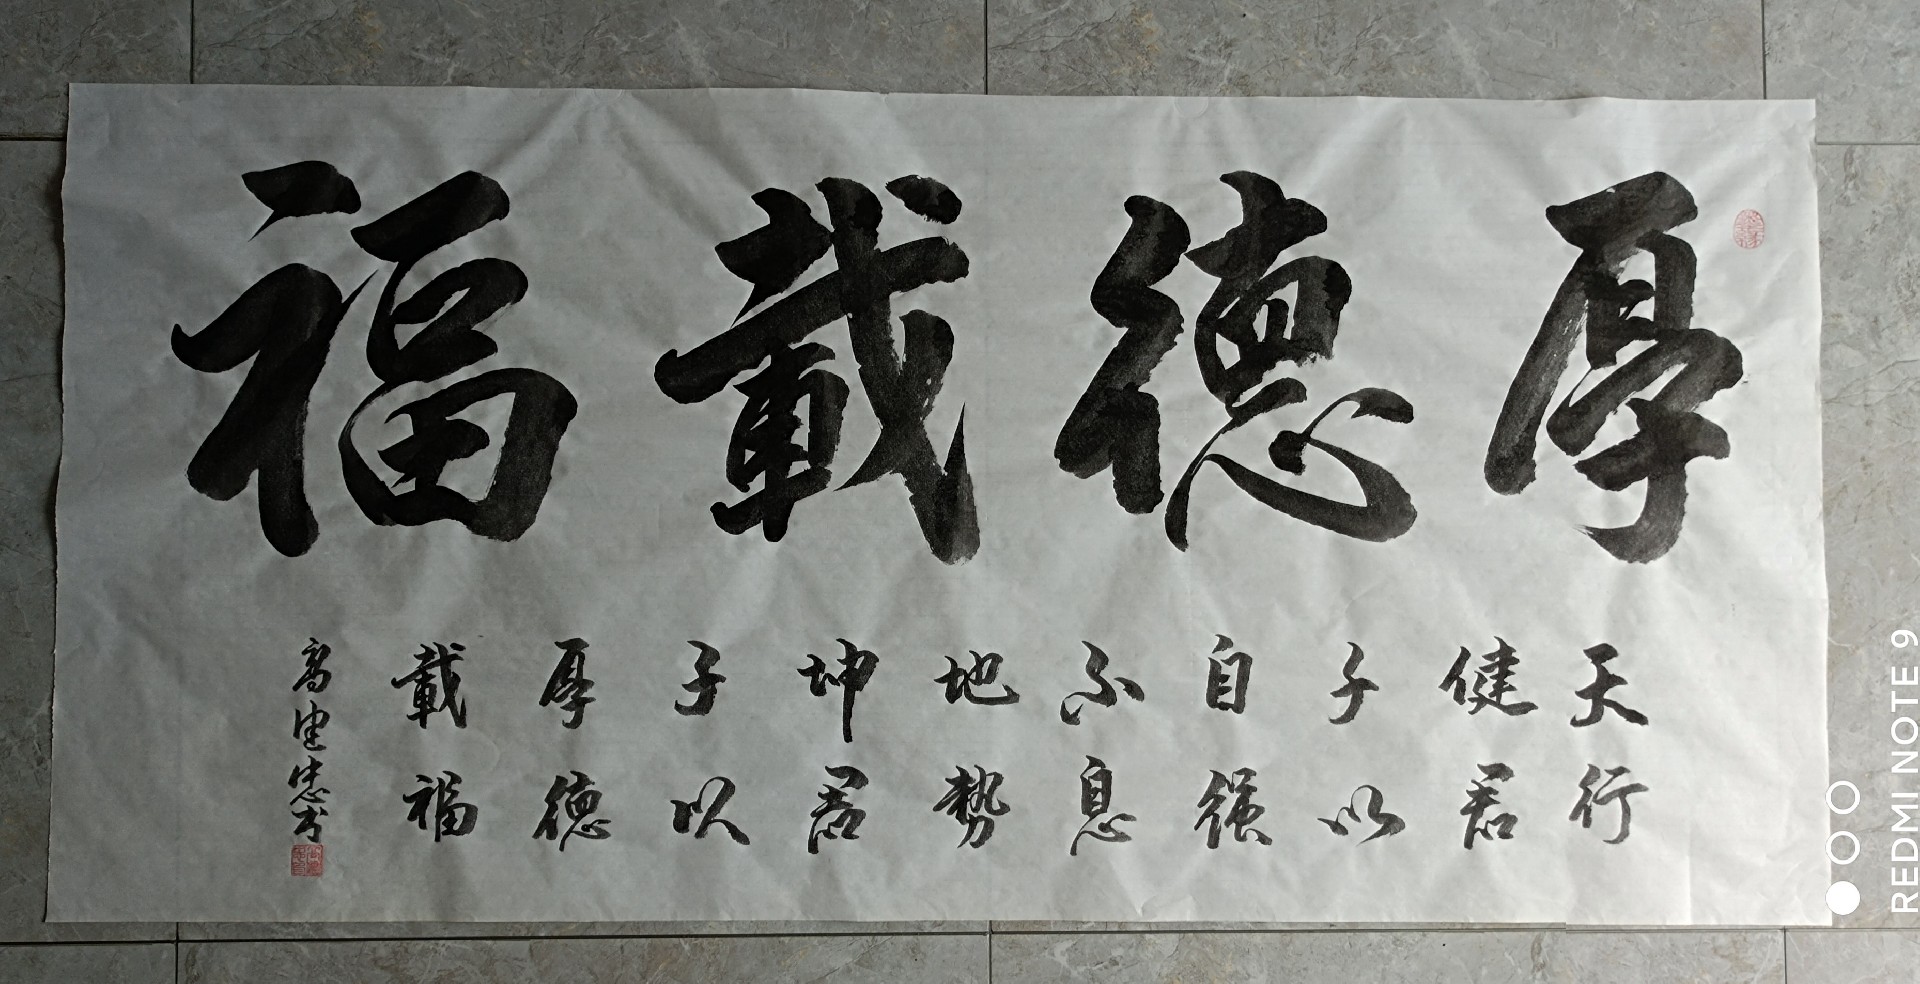 厚德載福
天行
健君
子以
自强
不息
地勢
坤君
子以
厚德
載福
高建忠书
REDMI NOTE 9